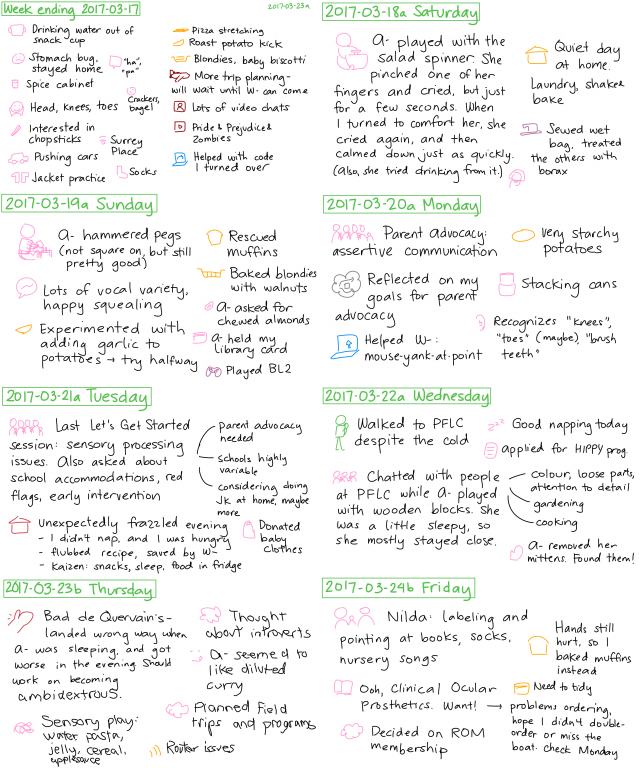 Week ending 2017-03-17
2017-03-23a
Drinking water out of
snack cup
Stomach bug,
stayed home
"ha",
"pa"
Spice cabinet
Crackers,
bagel
Head, knees, toes
Interested in
chopsticks
Surrey
Place
Pushing cars
Socks
Jacket practice
Pizza stretching
Roast potato kick
Blondies, baby biscotti
More trip planning-
will wait until W- can come
Lots of video chats
Pride & Prejudice &
Zombies
Helped with code
I turned over
2017-03-18a Saturday
A- played with the
salad spinner. She
pinched one of her
fingers and cried, but just
for a few seconds. When
I turned to comfort her, she
cried again, and then
calmed down just as quickly.
(Also, she tried drinking from it.)
Quiet day
at home.
Laundry, shake &
bake
Sewed wet
bag, treated
the others with
borax
2017-03-19a Sunday
A- hammered pegs
(not square on, but still
pretty good)
Lots of vocal variety,
happy squealing
Experimented with
adding garlic to
potatoes → try halfway
Rescued
muffins
Baked blondies
with walnuts
A- asked for
chewed almonds
A- held my
library card
Played BL2
2017-03-20a Monday
Parent advocacy:
assertive communication
Reflected on my
goals for parent
advocacy
Helped W-:
mouse-yank-at-point
Very starchy
potatoes
Stacking cans
Recognizes "knees",
"toes" (maybe), "brush
teeth"
2017-03-21a Tuesday
Last Let's Get Started
session: sensory processing
issues. Also asked about
school accommodations, red
flags, early intervention
Parent advocacy
needed
Schools highly
variable
considering doing
JK at home, maybe
more
Unexpectedly frazzled evening
- I didn't nap, and I was hungry
- flubbed recipe, saved by W-
- Kaizen: snacks, sleep, food in fridge
Donated
baby
clothes
2017-03-22a Wednesday
Walked to PFLC
despite the cold
Chatted with people
at PFLC while A- played
with wooden blocks. She
was a little sleepy, so
she mostly stayed close.
zzz
Good napping today
applied for HIPPY prog.
colour, loose parts,
attention to detail
gardening
cooking
A- removed her
mittens. Found them!
2017-03-23b Thursday
Bad de Quervain's -
landed wrong way when
A- was sleeping, and got
worse in the evening. Should
work on becoming
ambidextrous.
Sensory play:
water, pasta,
jelly, cereal,
applesauce
Thought
about introverts
A- seemed to
like diluted
curry
Planned field
trips and programs
Router issues
2017-03-24b Friday
Nilda: labeling and
pointing at books, socks,
nursery songs
Ooh, Clinical Ocular
Prosthetics. Want! →
Decided on ROM
membership
Hands still
hurt, so I
baked muffins
instead
Need to tidy
problems ordering,
hope I didn't double-
order or miss the
boat. Check Monday